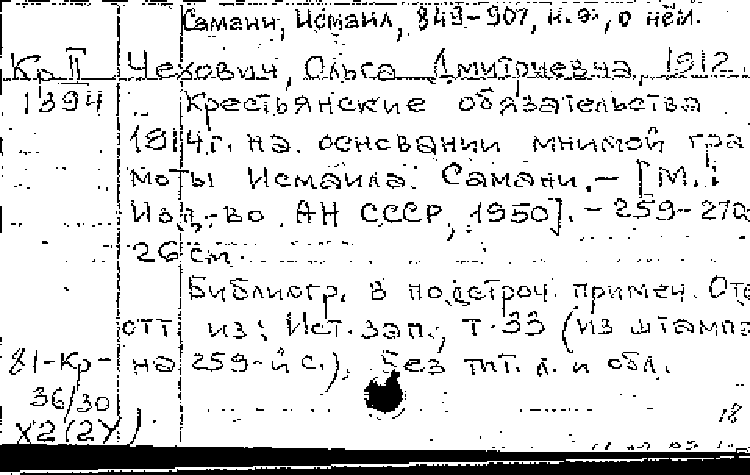 Самани, Исмаил, 849-907, н.э., о нём.
Кр П Чехович, Ольга Дмитриевна, 1912.
1394 Крестьянские обязательства
1914 г. на основании мнимой гра
моты Исмаила Самани. - [М.:
Изд-во АН СССР, 1950]. - 259-270
26 см.
Библиогр. в подстроч. примеч. Отд
отт из: Ист. зап., т. 33 (из штампа
81-Кр- на 259-й с.). Без тит. л. и обл.
36/30
X2(2У)
18